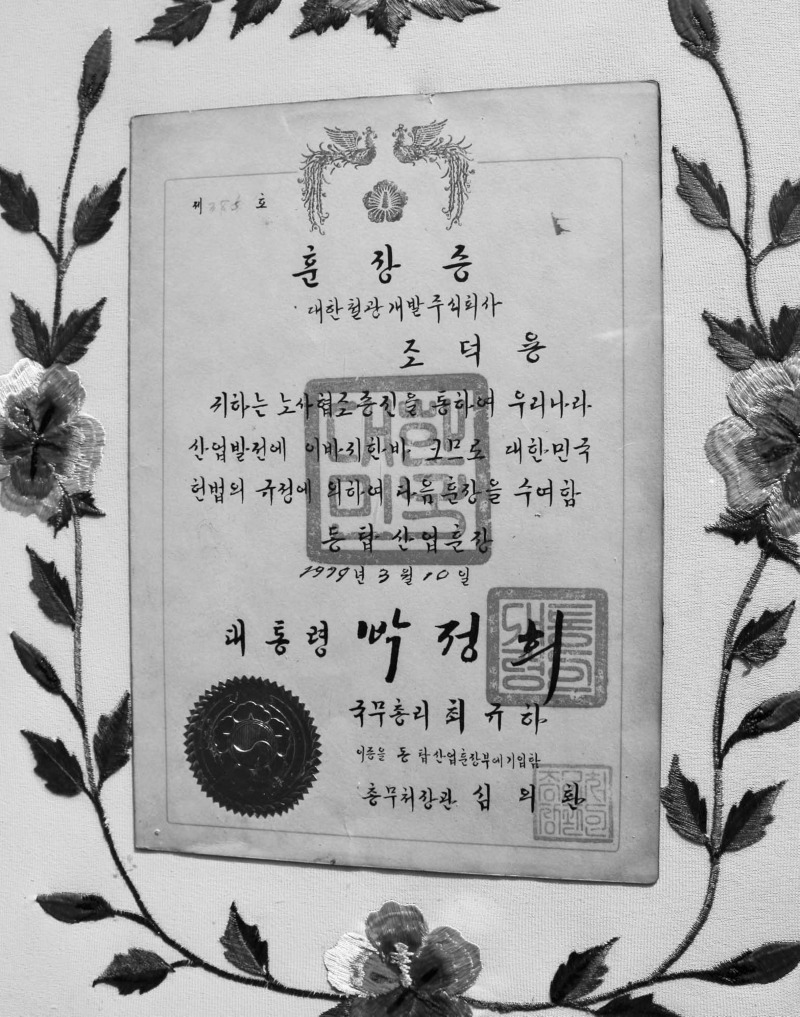 제 호
훈장증
대한철관개발주식회사
조덕용
귀하는 노사협조증진을 통하여 우리나라
산업발전에 이바지한바 크므로 대한민국
헌법의 규정에 의하여 다음 훈장을 수여함
동탑산업훈장
1979년 3월 10일
대통령 박정희
국무총리 최규하
이증을 동탑산업훈장부에기입함
총무처장관 심의환